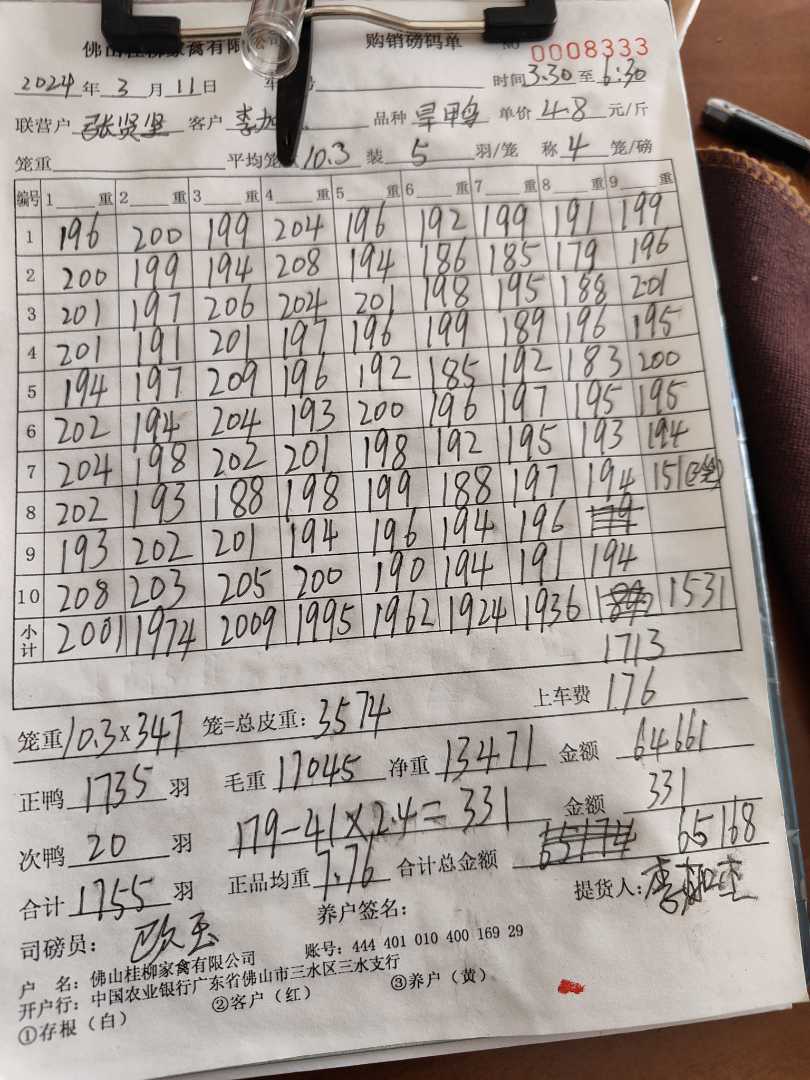 佛山桂柳家禽有限公司 购销磅码单 NO 0008333
2024年3月11日 车 号 时间3.30至6:30
联营户 张贤坚 客户 李 品种 旱鸭 单价 4.8 元/斤
笼重 平均笼 10.3 装 5 羽/笼 称 4 笼/磅
编号 1 重 2 重 3 重 4 重 5 重 6 重 7 重 8 重 9 重
1 196 200 199 204 196 192 199 191 199
2 200 199 194 208 194 186 185 179 196
3 201 197 206 204 201 198 195 188 201
4 201 191 201 197 196 199 189 196 195
5 194 197 209 196 192 185 192 183 200
6 202 194 204 193 200 196 197 195 195
7 204 198 202 201 198 192 195 193 194
8 202 193 188 198 199 188 197 194 151(3笼)
9 193 202 201 194 196 194 196
10 208 203 205 200 190 194 191 194
小计 2001 1974 2009 1995 1962 1924 1936 1531
1713
上车费 176
笼重 10.3×347 笼=总皮重: 3574
正鸭 1735 羽 毛重 17045 净重 13471 金额 64661
次鸭 20 羽 179-41×2.4=331 金额 331
合计 1755 羽 正品均重 7.76 合计总金额 65174 65168
司磅员: 养户签名: 提货人:
户 名: 佛山桂柳家禽有限公司 账号: 444 401 010 400 169 29
开户行: 中国农业银行广东省佛山市三水区三水支行
①存根（白） ②客户（红） ③养户（黄）